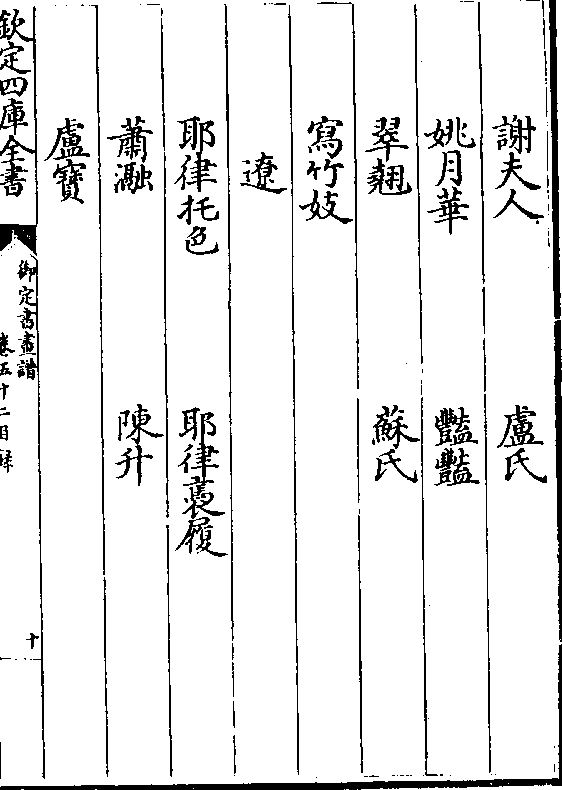 謝夫人 盧氏
姚月華 豔豔
翠翹 蘇氏
寫竹妓
遼
耶律托色 耶律褭履
蕭瀜 陳升
盧寶
欽定四庫全書
御定書畫譜
卷五十二目錄
十